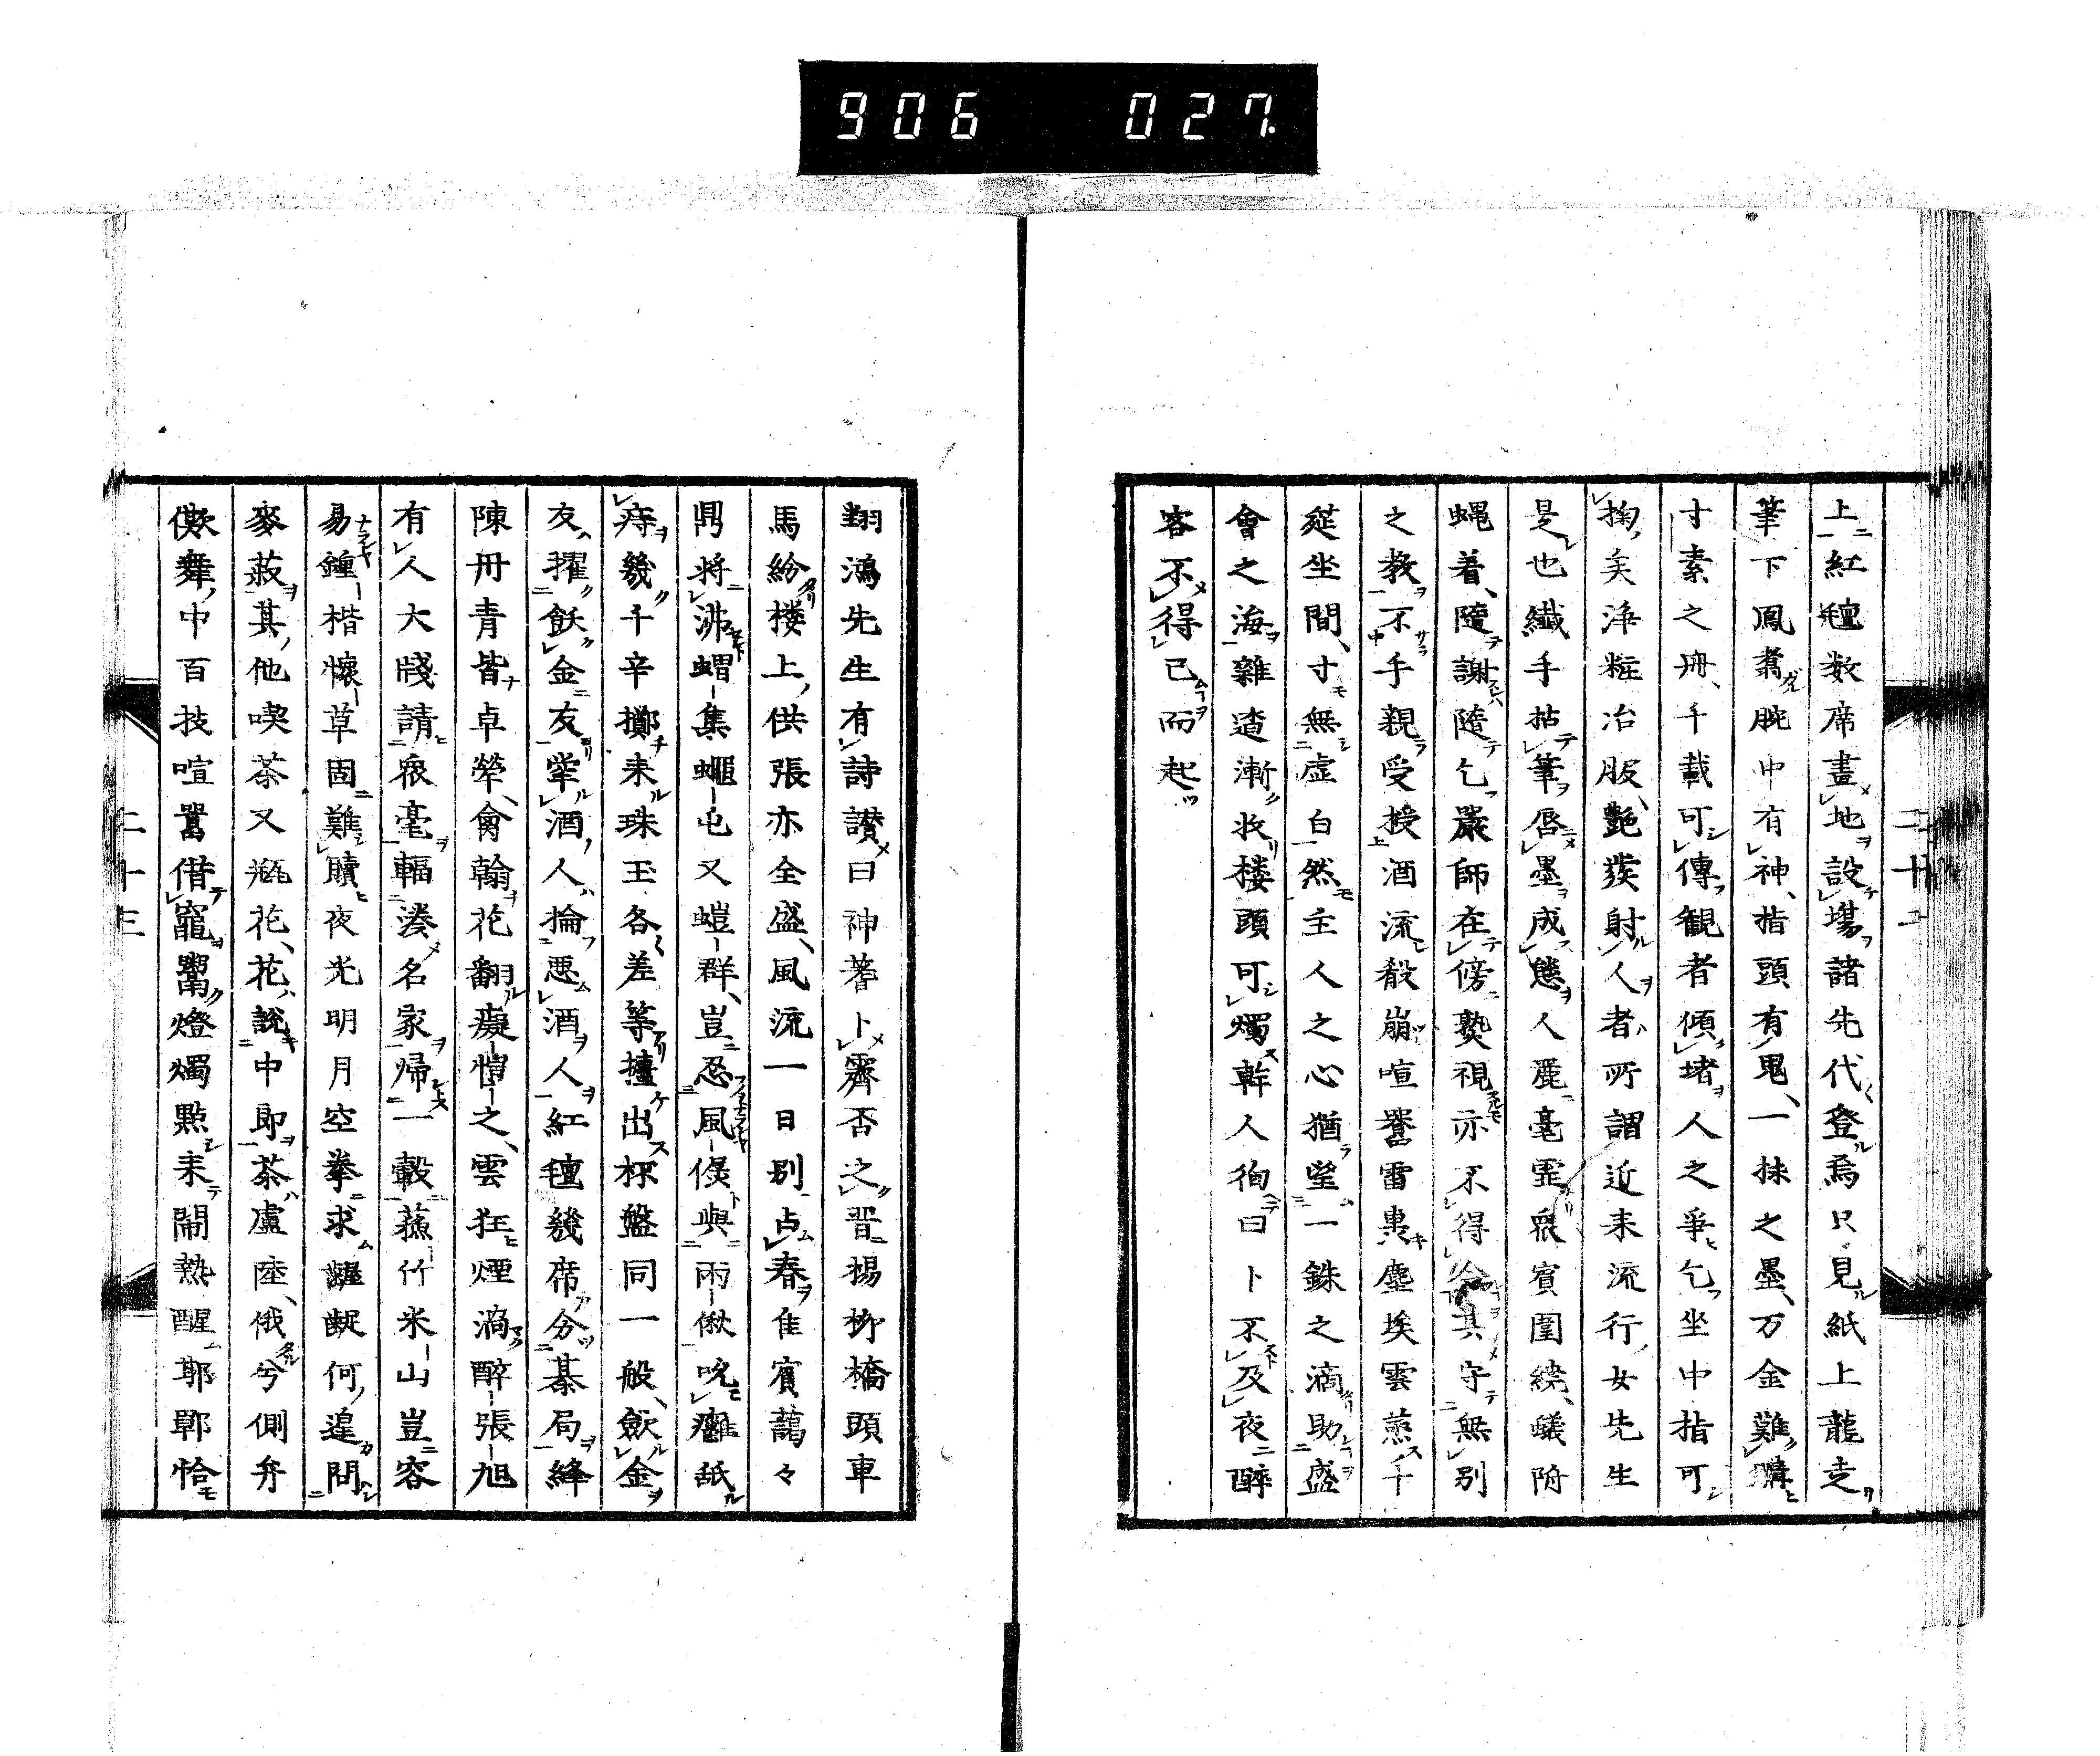 906 027
上紅氊数席畫地設場諸先代登焉只見紙上龍走
筆下鳳翥腕中有神指頭有鬼一抹之墨万金難購
寸素之冊千載可傳観者傾堵人之爭乞坐中指可
掬矣浄粧冶服艶發射人者所謂近来流行女先生
是也繊手拈筆唇墨成態人麗毫霊衆賓圍繞蟻附
蝿着隨謝隨乞嚴師在傍熟視亦不得其守無別
之教不手親受授酒流殽崩喧響雷轟塵埃雲蒸千
莚坐間寸無虚白然主人之心猶望一銖之滴助盛
會之海雜遝漸收楼頭可燭幹人徇曰卜不及夜醉
客不得已而起
翔鴻先生有詩讃曰神著卜霽否之晋揚柳橋頭車
馬紛楼上供張亦全盛風流一日別占春佳賓藹々
鼎将沸蝟集蠅屯又螘群豈忍風僝與雨僽吮癰舐
痔幾千辛擲来珠玉各差等擡出杯盤同一般飲金
友擢飫金友犖酒人掄悪酒人紅氊幾席分碁局絳
陳冊青皆卓犖禽翰花翻癡愷之雲狂煙渦醉張旭
有人大牋請衆毫輻湊名家帰一轂蕪竹米山豈容
易鍾楷懐草固難贖夜光明月空拳求齷齪何遑問
麥菽其他喫茶又瓶花花説中即茶盧陸俄兮側弁
僛舞中百技喧嚣借竈鬻燈燭點来閙熱醒邯鄲恰
二十三